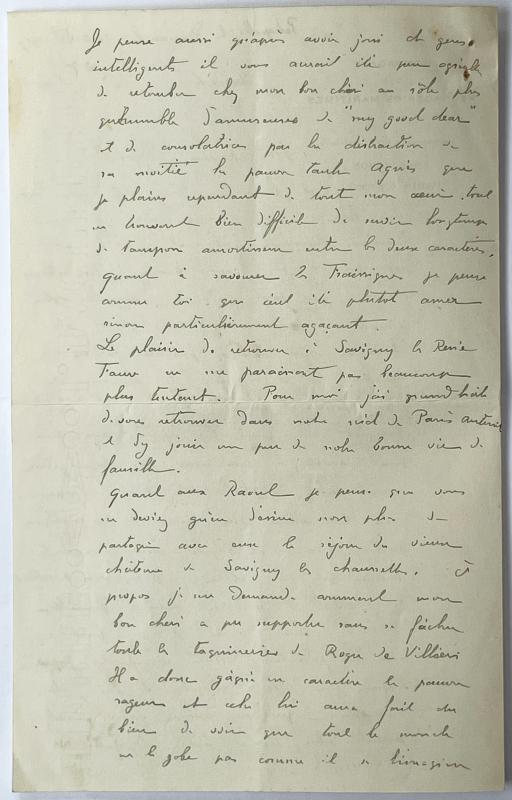 Je pense aussi qu'après avoir joui de gens
intelligents il vous aurait été peu agréable
de retomber chez mon bon chéri au rôle plus
qu'humble d'amuseuses de "my good dear"
et de consolatrices par la distraction de
sa moitié la pauvre tante Agnès que
je plains cependant de tout mon cœur tout
en trouvant bien difficile de servir longtemps
de tampon amortisseur entre les deux caractères.
Quant à savourer les je pense
comme toi que c'eut été plutôt amer
sinon particulièrement agaçant.
Le plaisir de retrouver à Savigny les
ne me paraissait pas beaucoup
plus tentant. Pour moi j'ai grand hâte
de vous retrouver dans notre nid de Paris
et d'y jouir un peu de notre bonne vie de
famille.
Quant aux Raoul je pense que vous
ne deviez guère désirer non plus de
partager avec eux le séjour du vieux
château de Savigny les chaussettes. À
propos je me demande comment mon
bon chéri a pu supporter sans se fâcher
toutes les taquineries de Roger de Villiers
Il a donc gagné en caractère le pauvre
rageur et cela lui aura fait du
bien de voir que tout le monde
ne le gobe pas comme il se l'imagine